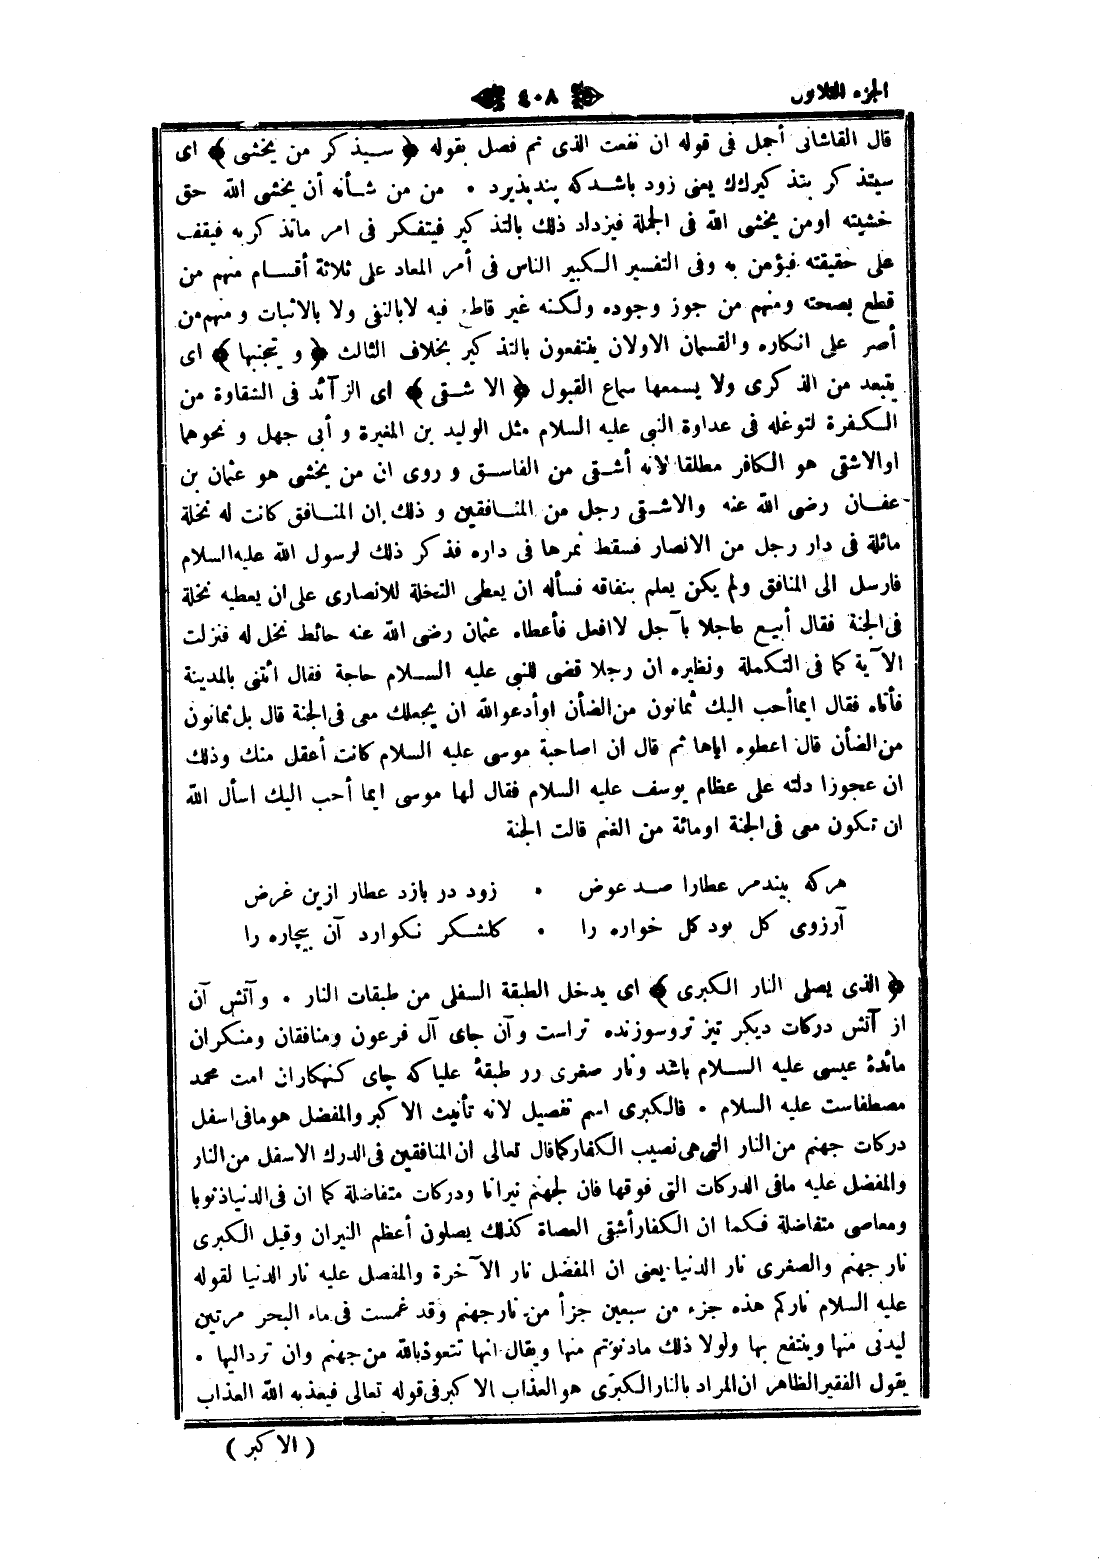 الجزء الثلاثون
٤٠٨
قال القاشانى أجمل فى قوله ان نفعت الذكرى ثم فصل بقوله ﴿ سيذكر من يخشى ﴾ اى
سيتذكر بتذكيرك يعنى زود باشدكه پندپذيرد • من من شأنه أن يخشى الله حق
خشيته اومن يخشى الله فى الجملة فيزداد ذلك بالتذكير فيتفكر فى امر ماتذكر به فيقف
على حقيقته فيؤمن به وفى التفسير الكبير الناس فى أمر المعاد على ثلاثة أقسام منهم من
قطع بصحته ومنهم من جوز وجوده ولكنه غير قاطع فيه لابالنفى ولا بالاثبات ومنهم من
أصر على انكاره والقسمان الاولان ينتفعون بالتذكير بخلاف الثالث ﴿ و يتجنبها ﴾ اى
يتبعد من الذكرى ولا يسمعها سماع القبول ﴿ الاشقى ﴾ اى الزآئد فى الشقاوة من
الكفرة لتوغله فى عداوة النبى عليه السلام مثل الوليد بن المغيرة و أبى جهل و نحوهما
اوالاشقى هو الكافر مطلقا لانه أشقى من الفاسق و روى ان من يخشى هو عثمان بن
عفان رضى الله عنه والاشقى رجل من المنافقين و ذلك ان المنافق كانت له نخلة
مائلة فى دار رجل من الانصار فسقط ثمرها فى داره فذكر ذلك لرسول الله عليه السلام
فارسل الى المنافق ولم يكن يعلم بنفاقه فسأله ان يعطى النخلة للانصارى على ان يعطيه نخلة
فى الجنة فقال أبيع عاجلا بآجل لاافعل فأعطاه عثمان رضى الله عنه حائط نخل له فنزلت
الآية كما فى التكملة ونظيره ان رجلا قضى للنبى عليه السلام حاجة فقال ائتنى بالمدينة
فأتاه فقال ايماأحب اليك ثمانون من الضأن اوأدعوالله ان يجعلك معى فى الجنة قال بل ثمانون
من الضأن قال اعطوه اياها ثم قال ان صاحبة موسى عليه السلام كانت أعقل منك وذلك
ان عجوزا دلته على عظام يوسف عليه السلام فقال لها موسى ايما أحب اليك اسأل الله
ان تكون معى فى الجنة اومائة من الغنم قالت الجنة
هركه بيند مر عطارا صد عوض • زود در بازد عطار ازين غرض
آرزوى كل بود كل خواره را • كلشكر نكوارد آن بيچاره را
﴿ الذى يصلى النار الكبرى ﴾ اى يدخل الطبقة السفلى من طبقات النار • وآتش آن
از آتش دركات ديكر تيز تر وسوزنده تراست وآن جاى آل فرعون ومنافقان ومنكران
مائدۀ عيسى عليه السلام باشد ونار صغرى رر طبقۀ عليا كه جاى كنهكاران امت محمد
مصطفاست عليه السلام • فالكبرى اسم تفصيل لانه تأنيث الاكبر والمفضل هومافى اسفل
دركات جهنم من النار التى هى نصيب الكفاركماقال تعالى ان المنافقين فى الدرك الاسفل من النار
والمفضل عليه مافى الدركات التى فوقها فان لجهنم نيرانا ودركات متفاضلة كما ان فى الدنيا ذنوبا
ومعاصى متفاضلة فكما ان الكفار أشقى العصاة كذلك يصلون أعظم النيران وقيل الكبرى
نار جهنم والصغرى نار الدنيا يعنى ان المفضل نار الآخرة والمفصل عليه نار الدنيا لقوله
عليه السلام ناركم هذه جزء من سبعين جزأ من نارجهنم وقد غمست فى ماء البحر مرتين
ليدنى منها وينتفع بها ولولا ذلك مادنوتم منها ويقال انها تتعوذ بالله من جهنم وان ترداليها •
يقول الفقير الظاهر ان المراد بالنار الكبرى هو العذاب الاكبر فى قوله تعالى فيعذبه الله العذاب
( الاكبر )